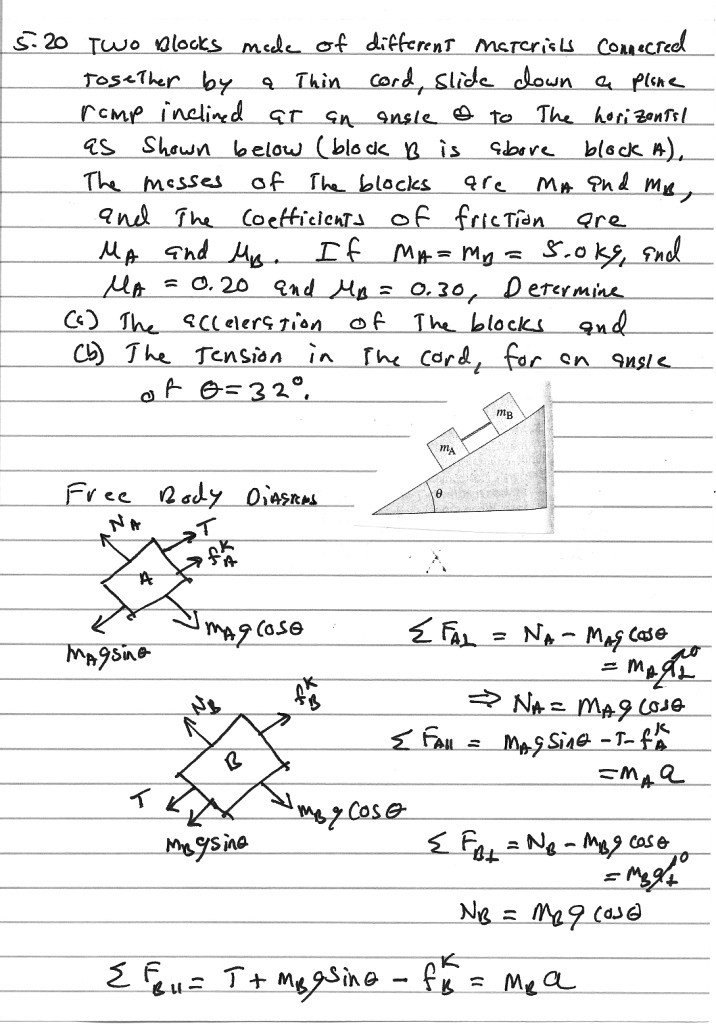 5.20 Two Blocks made of different materials connected
together by a thin cord, slide down a plane
ramp inclined at an angle θ to the horizontal
as shown below (block B is above block A).
The masses of the blocks are mA and mB,
and the coefficients of friction are
μA and μB. If mA = mB = 5.0 kg, and
μA = 0.20 and μB = 0.30, Determine
(a) The acceleration of the blocks and
(b) The tension in the cord, for an angle
of θ = 32°.
mB
mA
θ
Free Body Diagrams
NA
T
fA^K
A
mAg cosθ
mAg sinθ
Σ FA⊥ = NA - mAg cosθ
= mA a⊥ 0
⇒ NA = mAg cosθ
Σ FA|| = mAg sinθ - T - fA^K
= mA a
NB
fB^K
B
T
mBg cosθ
mBg sinθ
Σ FB⊥ = NB - mBg cosθ
= mB a⊥ 0
NB = mBg cosθ
Σ FB|| = T + mBg sinθ - fB^K = mB a